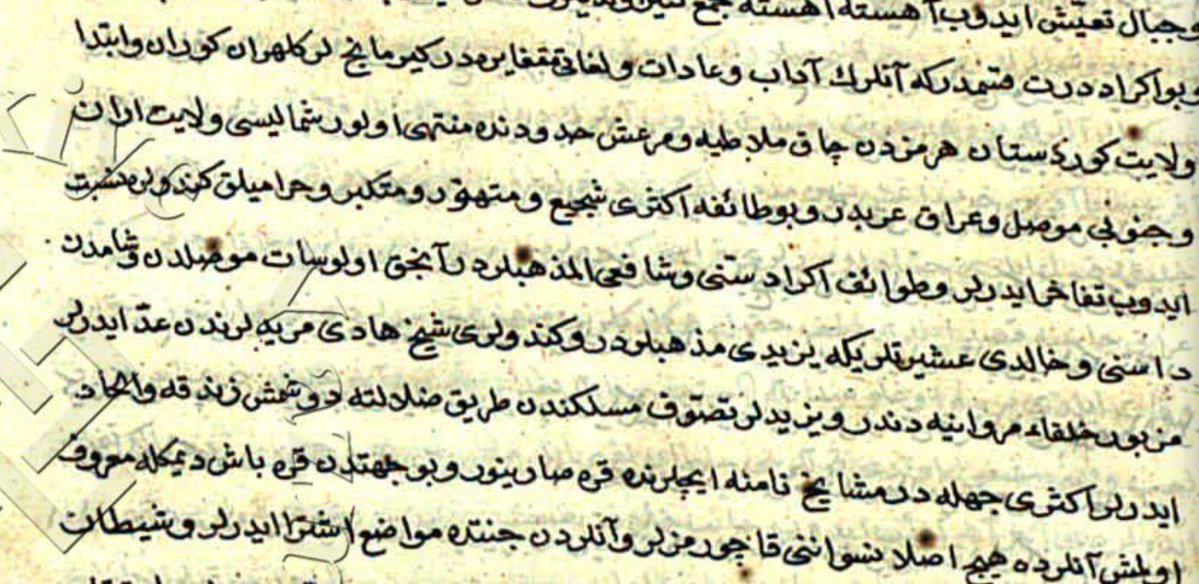 وجبال تعیش ایدوب آهسته آهسته جمع
وبو اکراد درت قسمدر که آنلرك آداب وعادات ولغاتی متغایره در کیرمانج لر کلهران کوران وابتدا
ولایت کوردستان هرمزدن چاق ملاطیه ومرعش حدودنده منتهی اولور شمالیسی ولایت اران
وجنوبی موصل وعراق عربدر وبوطائفه اکثری شجیع ومتهور ومتکبر وحرامیلق کندولره نسبت
ایدوب تفاخر ایدرلر وطوائف اکراد سنی وشافعی المذهبلردر آنجق اولوسات موصلدن وشامدن
داسنی وخالدی عشیرتلریکه یزیدی مذهبلردر وکندولری شیخ هادی مریدلرندن عد ایدرلر
مزبور خلفاء مروانیه دندر ویزیدلر تصوف مسلکندن طریق ضلالته دوشمش زندقه والحاد
ایدرلر اکثری جهله در مشایخ نامنه ایچلرنده قره صارینور وبو جهتدن قره باش دیمکله معروف
اولمش آنلرده هیچ اصلا نسواننی قاچورمزلر وآنلردن جنتده مواضع اشترا ایدرلر وشیطان